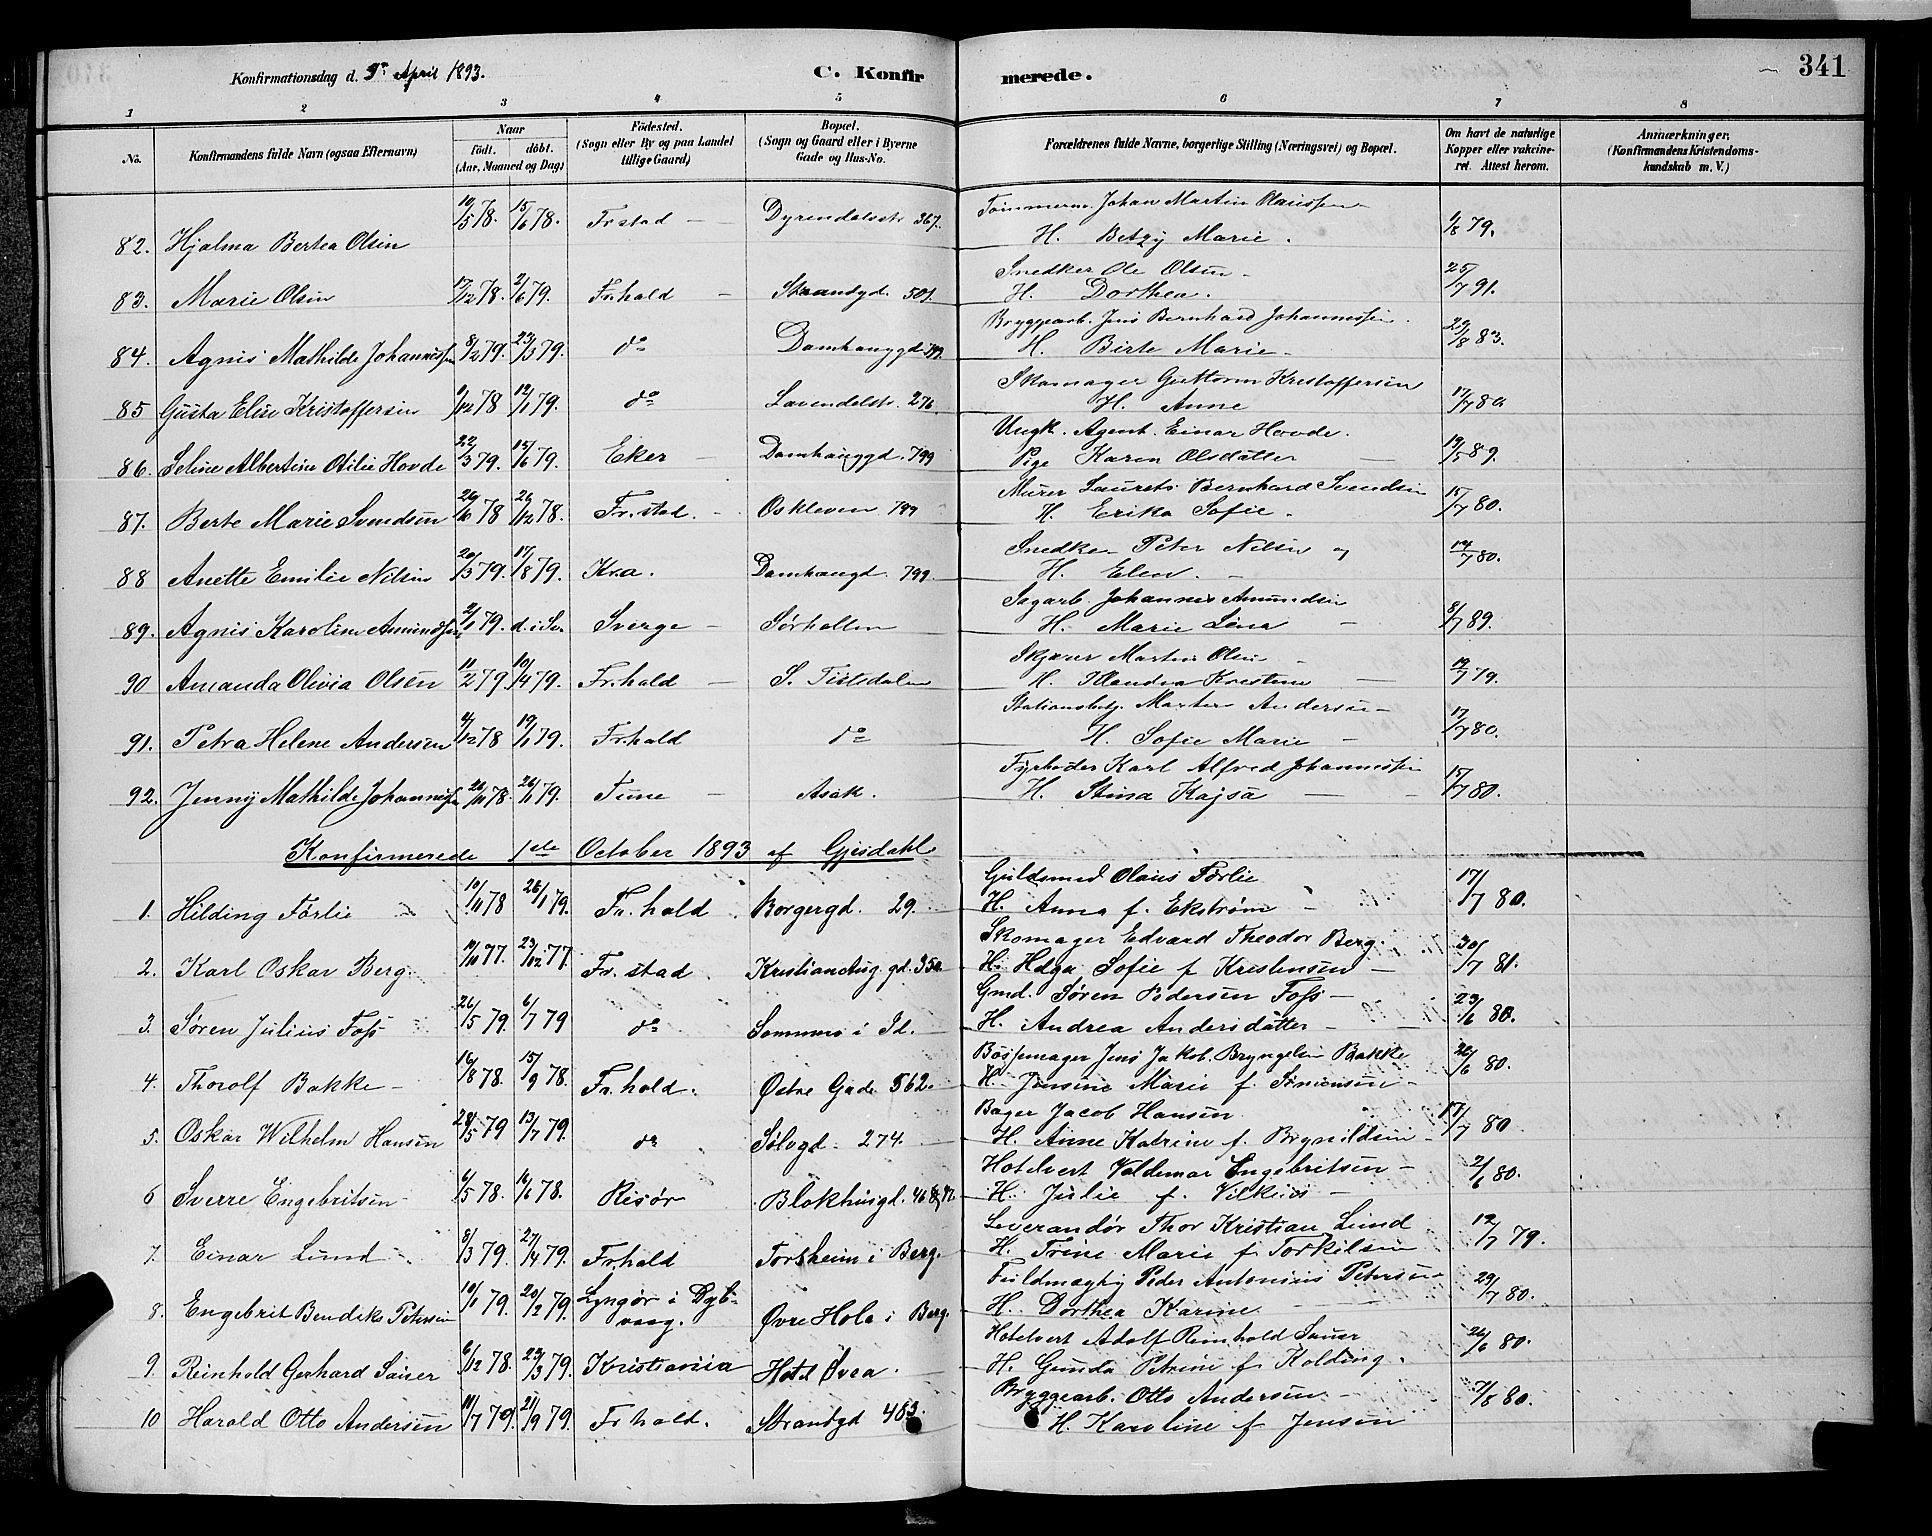 Konfirmationsdag d. 9de April 1893. C. Konfirmerede. 341
1 2 3 4 5 6 7 8
No. Konfirmandens fulde Navn (ogsaa Efternavn) Naar født. døbt. (Aar, Maaned og Dag) Fødested. (Sogn eller By og paa Landet tillige Gaard) Bopæl. (Sogn og Gaard eller i Byerne Gade og Hus-No. Forældrenes fulde Navne, borgerlige Stilling (Næringsvei) og Bopæl. Om havt de naturlige Kopper eller vakcineret. Attest herom. Anmærkninger. (Konfirmandens Kristendomskundskab m. V.)
82. Hjalma Bertea Olsen 10/5 78. 15/6 78. Fr.stad Dyrendalsstr. 367. Tømmerm. Johan Martin Olaussen
H. Betzy Marie. 1/8 79.
83. Marie Olsen 17/12 78. 2/6 79. Fr.hald Strandgd. 501. Snedker Ole Olsen
H. Dorthea. 25/7 91.
84. Agnes Mathilde Johannessen 8/2 79. 23/3 79. do Damhauggd. 799. Bryggearb. Jens Bernhard Johannessen
H. Birte Marie 29/8 83.
85 Gusta Elise Kristoffersen 9/12 78 12/1 79. do Lavendelstr. 276. Skomager Guttorm Kristoffersen
H. Anne 17/7 80.
86. Seline Albertine Otilie Hovde 22/3 79. 15/6 79. Eker Damhauggd. 799 Ungk. Agent. Einar Hovde.
Pige Karen Olsdatter 19/5 89.
87. Berte Marie Svendsen 26/10 78 26/12 78. Fr.stad. Oskleven 799 Murer Laurets Bernhard Svendsen
H. Erika Sofie 15/7 80.
88 Anette Emilie Nilsen 20/3 79. 17/8 79. Kr.a. Damhaugd. 799. Snedker Peter Nilsen og
H. Elen. 17/7 80.
89. Agnes Karoline Amundsen 2/1 79. d. i Sv. Sverge Sørhallen Sagarb. Johannes Amundsen
H. Marie Lena 8/7 89.
90 Amanda Olivia Olsen 11/2 79. 10/4 79. Fr.hald S. Tistedalen Skjærer Martin Olsen
H. Kristine 19/7 79.
91. Petra Helene Andersen 4/12 78 19/1 79. Fr.hald do Stationsbetj. Martin Andersen
H. Sofie Marie 17/7 80.
92. Jenny Mathilde Johannessen 20/11 78. 26/1 79. Tune Asak. Fyrbøder Karl Alfred Johannessen
H. Stina Kajsa 15/7 80.
Konfirmerede 1ste October 1893 af Gjesdahl
1. Hilding Førlie 10/11 78 26/1 79. Fr.hald Borgergd. 29. Guldsmed Olaus Førlie
H. Anna f. Ekstrøm 17/7 80.
2. Karl Oskar Berg. 10/10 77. 23/12 77 Fr.stad Kristian Aug. gd. 350 Skomager Edvard Theodor Berg.
H. Helga Sofie f Kristensen 30/7 81.
3. Søren Julius Foss 26/5 79. 6/7 79 do Sommero i Id. Gmd. Søren Pedersen Foss
H. Andrea Andersdatter 23/6 80.
4. Thorolf Bakke 16/8 78. 15/9 78. Fr.hald. Østre Gade 562. Bøssemager Jens Jakob Bryngelsen Bakke
H. Jensine Marie f. Simensen 26/6 80.
5. Oskar Wilhelm Hansen 24/5 79 13/7 79. do Sølvgd. 274. Bager Jacob Hansen
H. Anne Katrine f. Brynildsen 17/7 80
6 Sverre Engebritsen 4/5 78. 16/6 78. Risør Blokhusgd. Hotelvert Valdemar Engebritsen
H. Julie f. 2/6 80.
7. Einar Lund 8/3 79. 27/4 79. Fr.hald Torsheim i Berg. Leverandør Thor Kristian Lund
H. Trine Marie f Torkilsen 12/7 79.
8. Engebrit Bendiks Petersen 10/1 79. 20/2 79. Lyngør i Dybvaag. Øvre Hola i Berg. Fuldmægtig Peder Antonius Petersen
H. Dorthea Karine 29/7 80.
9. Reinhold Gerhard Sauer 6/12 78. 23/3 79. Kristiania Hotel Øvea. Hotelvert Adolf Reinhold Sauer
H. Gunda Petrine f. Kolding. 26/6 80.
10 Harald Otto Andersen 10/7 79. 21/9 79. Fr.hald. Strandgd 483. Bryggearb. Otto Andersen
H. Karoline f Jensen 7/8 80.